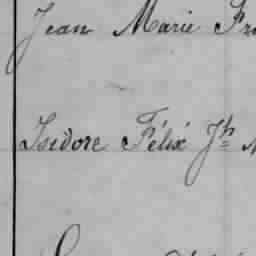 Jean Marie Fr
Isidore Félix Jh